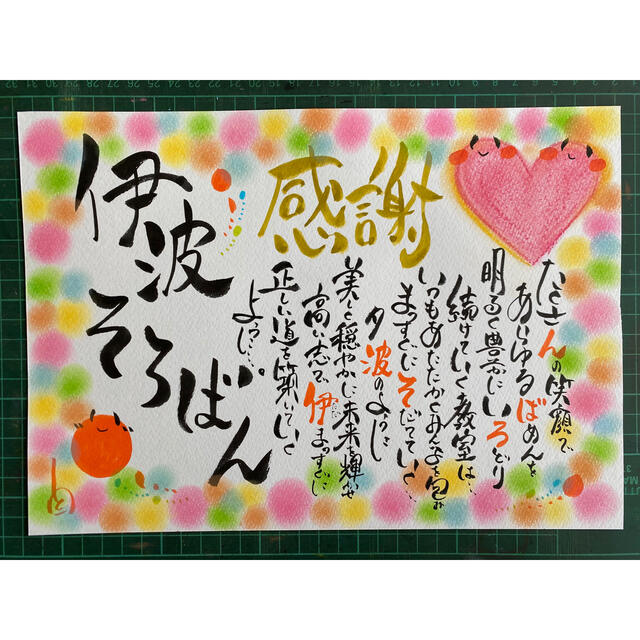 感謝
たくさんの笑顔で
あらゆるばめんを
明るく豊かにいろどり
続けていく教室は…
いつもあたたかくみんなを包み
まっすぐにそだてていく…
夕波のように
美しく穏やかに未来を輝かせ
高い志で伊まっすぐに
正しい道を築いていく
ように…。
伊波
そろばん